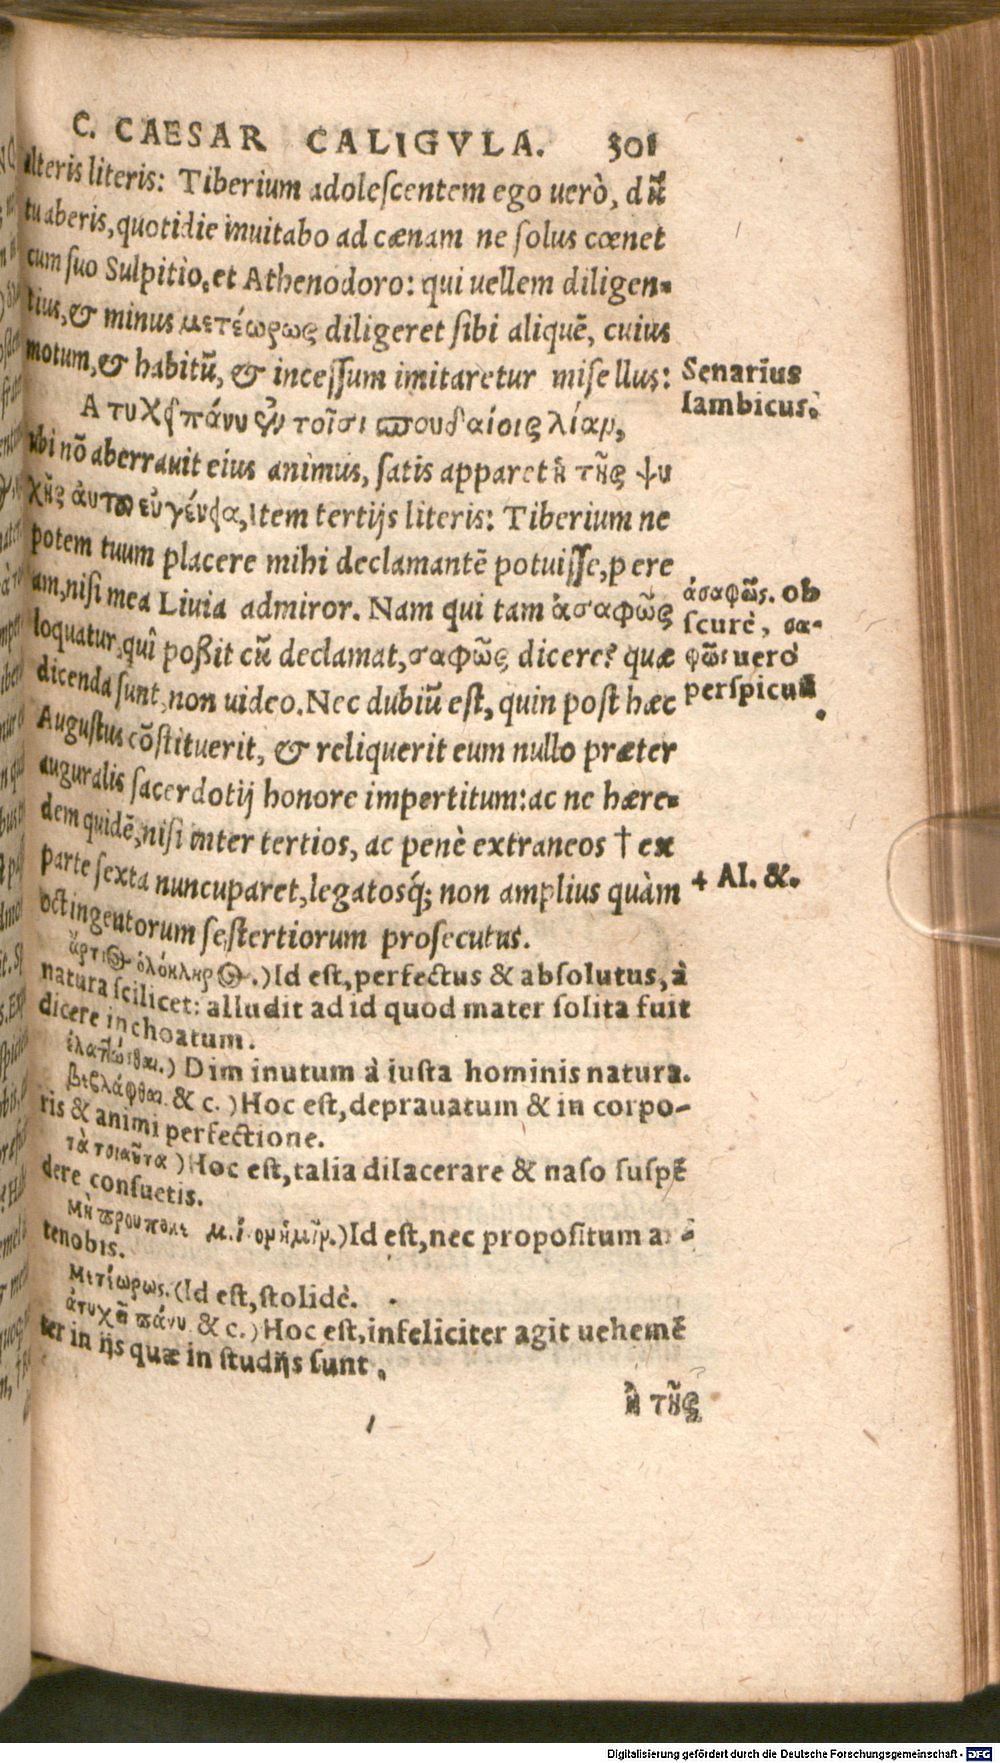 C. CAESAR CALIGVLA. 301
alteris literis: Tiberium adolescentem ego uerò, dũ
tu aberis, quotidie inuitabo ad cænam ne solus cœnet
cum suo Sulpitio, et Athenodoro: qui uellem diligen-
tius, & minus μετέωρως diligeret sibi aliquē, cuius
motum, & habitũ, & incessum imitaretur misellus:
Senarius
Iambicus.
Ατυχεῖ πάνυ ἐν τοῖσι σπουδαίοις λίαν,
ubi nō aberrauit eius animus, satis apparet ἡ τῆς ψυ
χῆς ἀυτοῦ εὐγένεια, Item tertijs literis: Tiberium ne
potem tuum placere mihi declamantē potuisse, pere
am, nisi mea Liuia admiror. Nam qui tam ἀσαφῶς
loquatur, quî poßit cũ declamat, σαφῶς dicere? quæ
dicenda sunt, non uideo. Nec dubiũ est, quin post hæc
ἀσαφῶς. ob
scurè, σα-
φῶς uero
perspicuè
Augustus cōstituerit, & reliquerit eum nullo præter
auguralis sacerdotij honore impertitum: ac ne hære-
dem quidē, nisi inter tertios, ac penè extraneos † ex
parte sexta nuncuparet, legatosq́; non amplius quàm
Al. &.
octingentorum sestertiorum prosecutus.
ἄρτιος ὁλόκληρος.) Id est, perfectus & absolutus, à
natura scilicet: alludit ad id quod mater solita fuit
dicere inchoatum.
ἐλαττῶσθαι.) Diminutum à iusta hominis natura.
βεβλάφθαι & c.) Hoc est, deprauatum & in corpo-
ris & animi perfectione.
τὰ τοιαῦτα) Hoc est, talia dilacerare & naso suspē
dere consuetis.
Id est, nec propositum a
tenobis.
Μετέωρως. (Id est, stolidè.
ἀτυχεῖ πάνυ & c.) Hoc est, infeliciter agit uehemē
ter in ijs quæ in studijs sunt.
ἡ τῆς
Digitalisierung gefördert durch die Deutsche Forschungsgemeinschaft - DFG